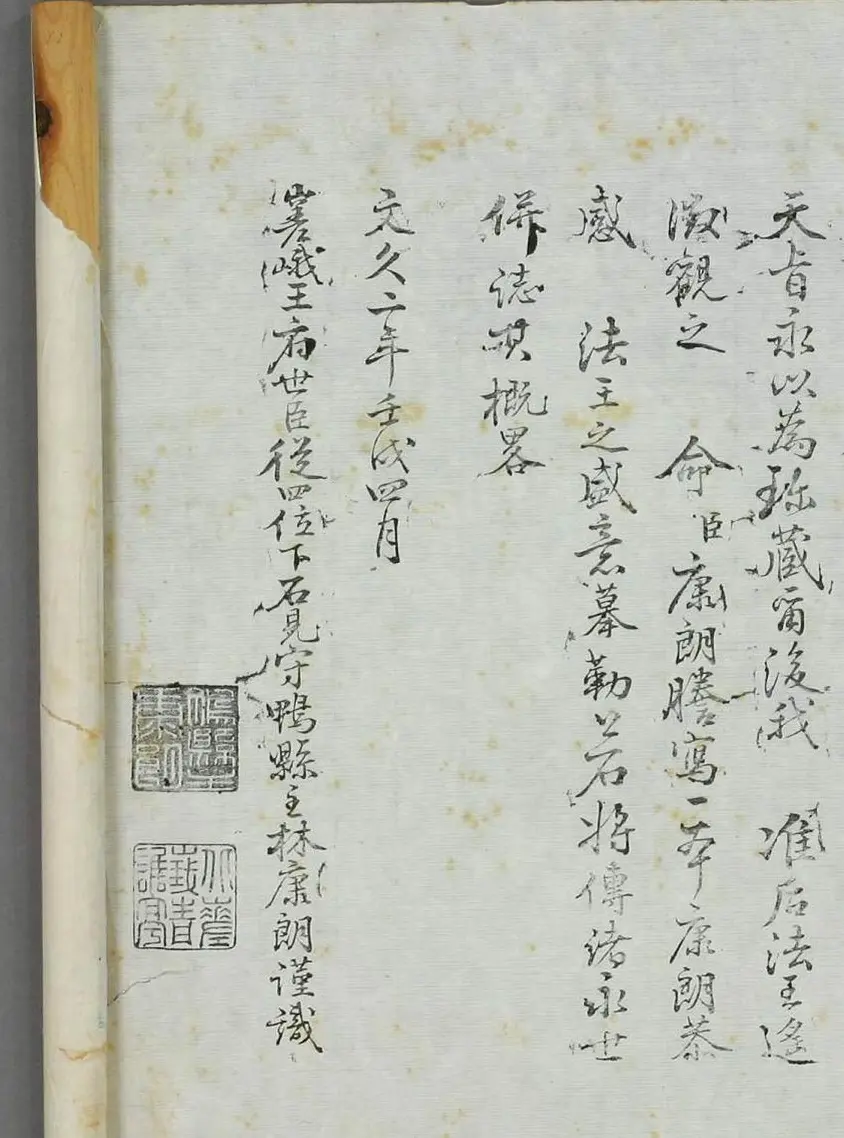 天旨永以為珍藏爾後我　准后法王遙
徵觀之　命臣康朗謄寫一本康朗恭
感　法王之盛意摹勒上石将傳諸永世
併誌其概畧
文久二年壬戌四月
嵯峨王府世臣從四位下石見守鴨縣主林康朗謹識